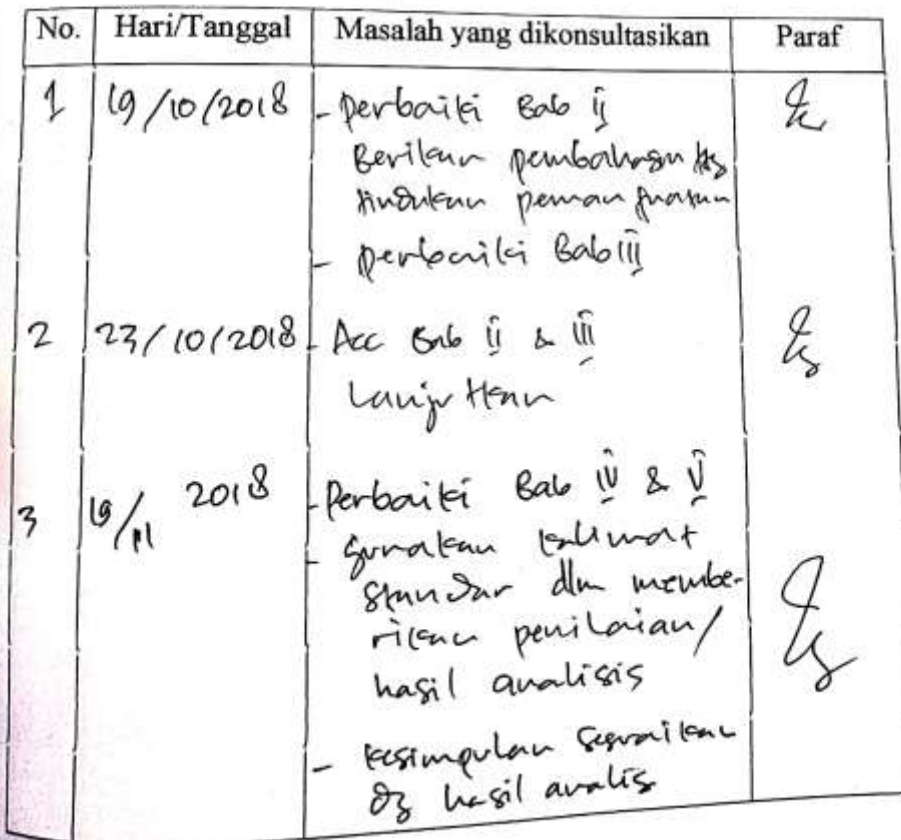 No. Hari/Tanggal Masalah yang dikonsultasikan Paraf
1 19/10/2018 - perbaiki Bab II
Berikan pembahasan ttg
tindakan pemanfaatan
- perbaiki Bab III
2 23/10/2018 - Acc Bab II & III
Lanjutkan
3 19/11 2018 - Perbaiki Bab IV & V
- gunakan kalimat
standar dlm membe-
rikan penilaian/
hasil analisis
- kesimpulan sesuaikan
dg hasil analis